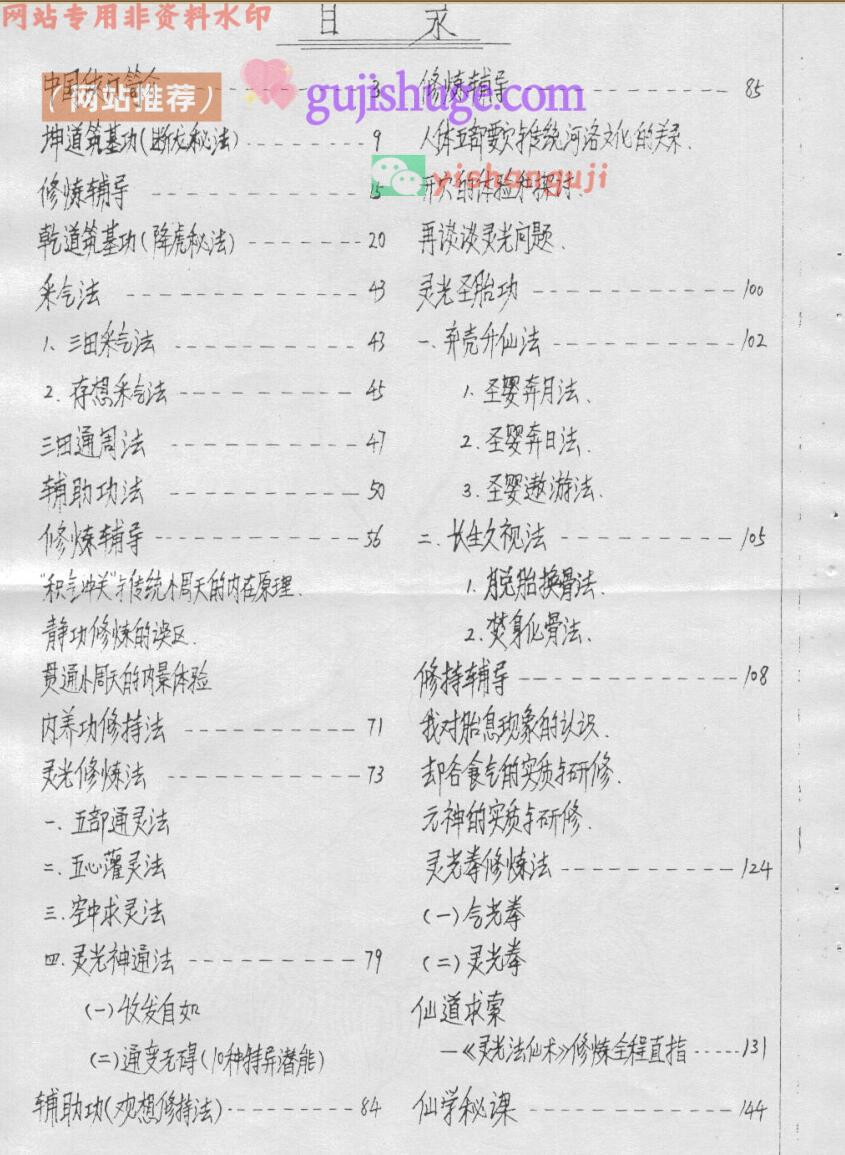 网站专用非资料水印
目 录
中国
3
(网站推荐)
gujishuge.com
坤道筑基功(断龙秘法) 9
yishanguji
修炼辅导 15
乾道筑基功(降虎秘法) ------- 20
采气法 ------- 43
1、三田采气法 ------- 43
2.存想采气法 ------- 45
三田通周法 ------- 47
辅助功法 ------- 50
修炼辅导 ------- 56
"积气冲关"与传统小周天的内在原理.
静功修炼的误区.
贯通小周天的内景体验
内养功修持法 ------- 71
灵光修炼法 ------- 73
一.五部通灵法
二.五心灌灵法
三.空中求灵法
四.灵光神通法 ------- 79
(一)收发自如
(二)通变无碍(10种特异潜能)
辅助功(观想修持法) ------- 84
修炼辅导 ------- 85
人体五部要穴与传统河洛文化的关系.
开穴的体验和探讨.
再谈谈灵光问题.
灵光圣胎功 ------- 100
一.弃壳升仙法 ------- 102
1.圣婴奔月法、
2.圣婴奔日法.
3.圣婴遨游法.
二.长生久视法 ------- 105
1.脱胎换骨法.
2.焚身化骨法.
修持辅导 ------- 108
我对胎息现象的认识.
却谷食气的实质与研修.
元神的实质与研修.
灵光拳修炼法 ------- 124
(一)气光拳
(二)灵光拳
仙道求索
—《灵光法仙术》修炼全程直指 ----- 131
仙学秘课 ------- 144